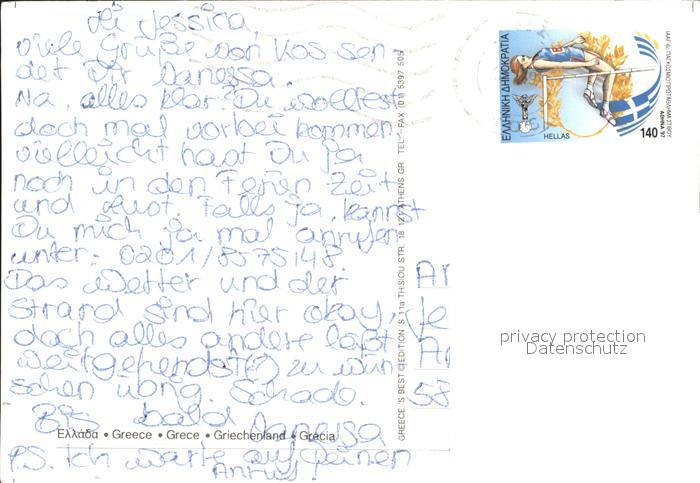 Hi Jessica,
viele Grüße von Kos sen-
det Dir Vanessa.
Na, alles klar? Du wolltest
doch mal vorbei kommen.
vielleicht hast Du ja
noch in den Ferien Zeit
und Lust. Falls ja, kannst
Du mich ja mal anrufen
unter: 0201/8575148.
Das Wetter und der
Strand sind hier okay,
doch alles andere läßt
weit(gehendst(e) zu wün-
schen übrig. Schade.
Bis bald
Vanessa
P.S. Ich warte auf Deinen
Anruf!
Ελλάδα • Greece • Grece • Griechenland • Grecia
GREECE 'S BEST EDITION 'S 11a THISIOU STR. 18 121 ATHENS GR TEL - FAX (01) 5397 505
An
Je
Ar
58
ΕΛΛΗΝΙΚΗ ΔΗΜΟΚΡΑΤΙΑ
HELLAS
140
ΑΘΗΝΑ '97
privacy protection
Datenschutz